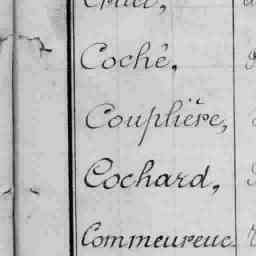 Coché,
Couplière,
Cochard,
Commeureuc